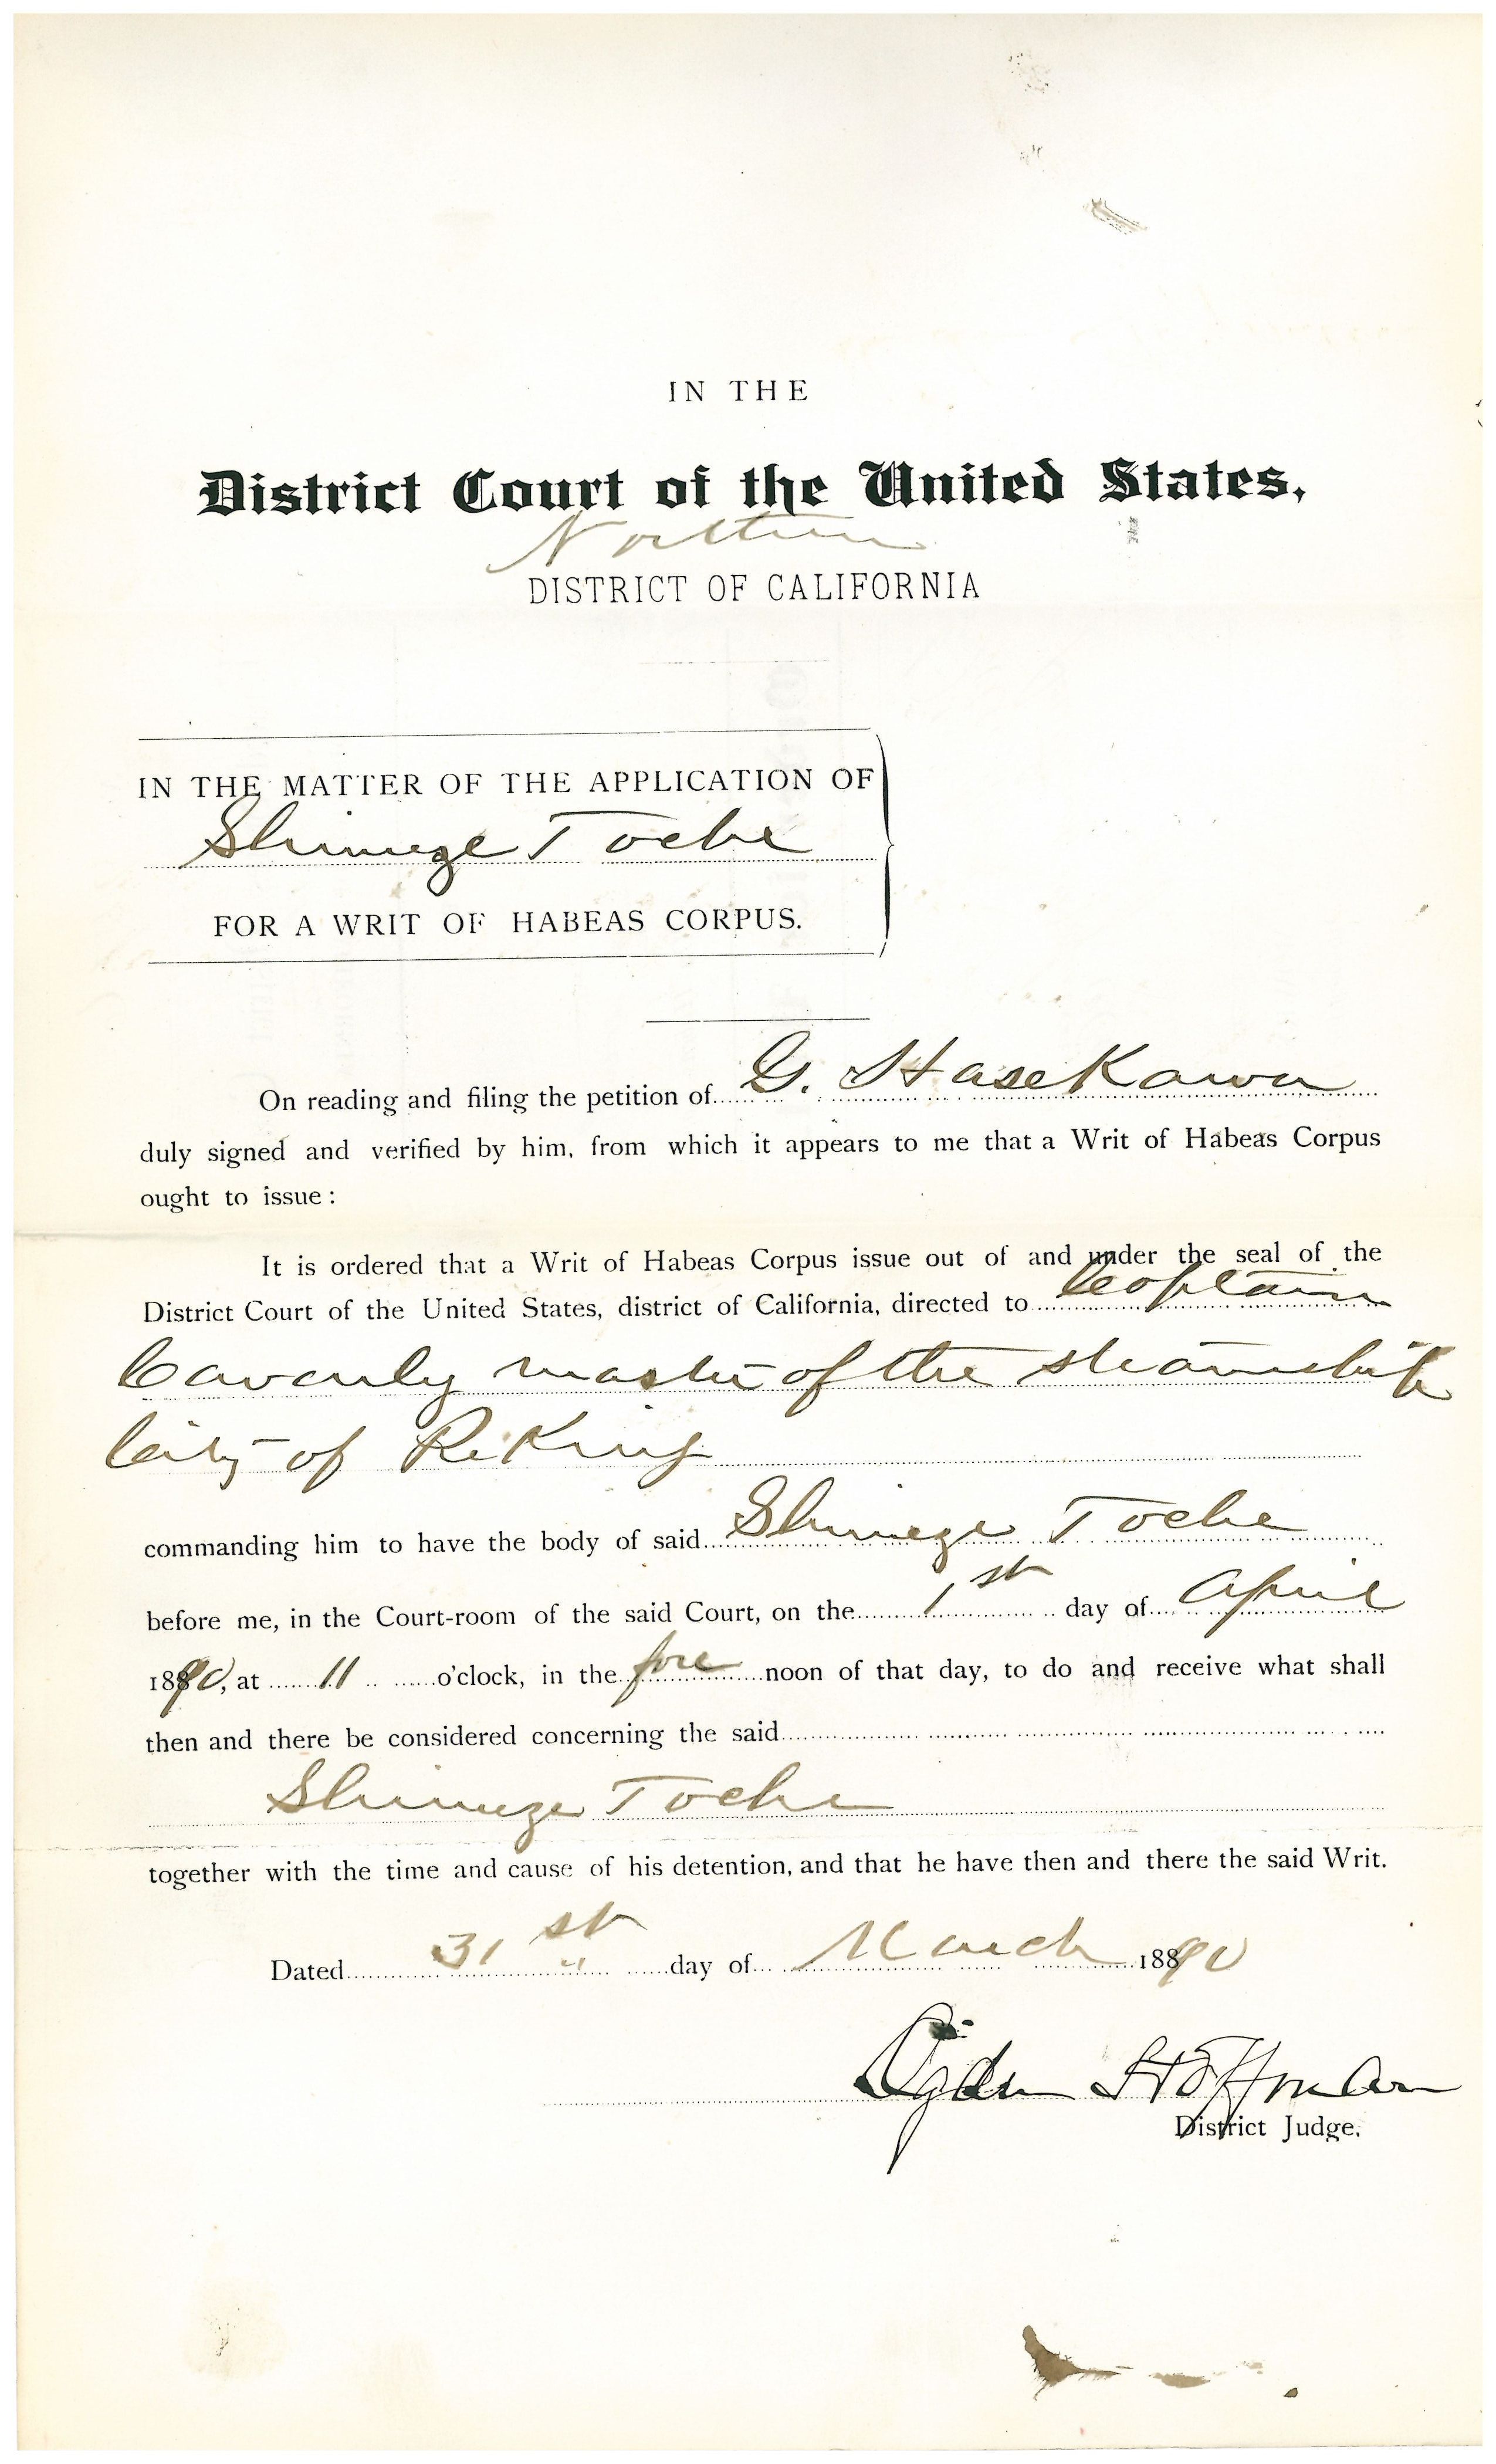 IN THE
District Court of the United States,
Northern
DISTRICT OF CALIFORNIA
IN THE MATTER OF THE APPLICATION OF
Shimeze Toche
FOR A WRIT OF HABEAS CORPUS.
On reading and filing the petition of G. Hasekawa
duly signed and verified by him, from which it appears to me that a Writ of Habeas Corpus
ought to issue:
It is ordered that a Writ of Habeas Corpus issue out of and under the seal of the
District Court of the United States, district of California, directed to Captain
Cavarly master of the steamship
City of Peking
commanding him to have the body of said Shimeze Toche
before me, in the Court-room of the said Court, on the 1st day of April
1890, at 11 o'clock, in the fore noon of that day, to do and receive what shall
then and there be considered concerning the said
Shimeze Toche
together with the time and cause of his detention, and that he have then and there the said Writ.
Dated 31st day of March 1890
Ogden Hoffman
District Judge.